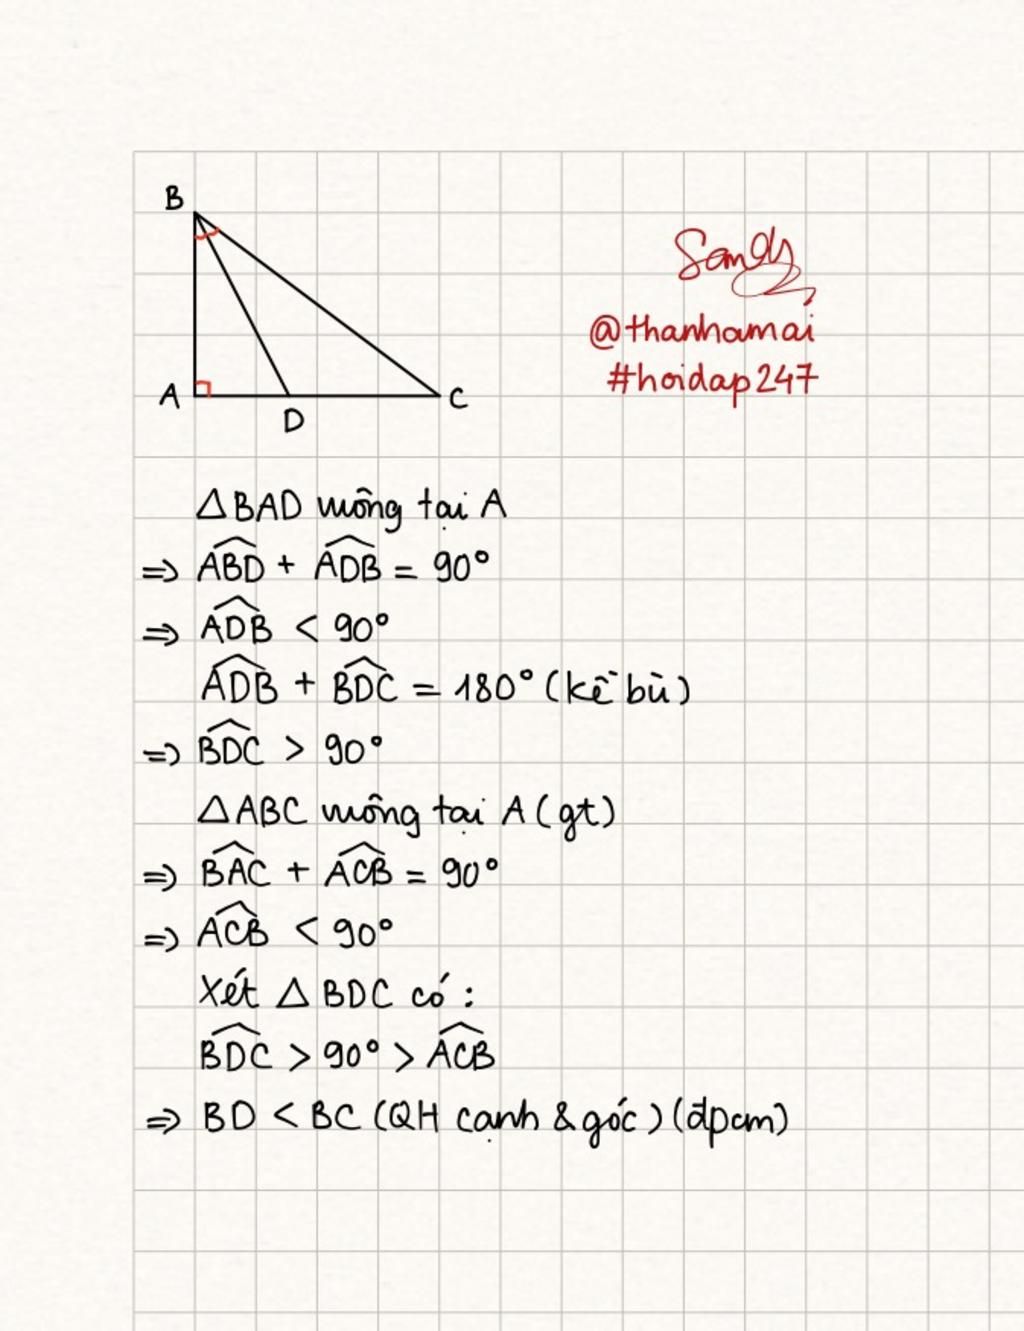 B
A
D
C
Sandy
@thanhamai
#hoidap247
△BAD vuông tại A
⇒ \widehat{ABD} + \widehat{ADB} = 90°
⇒ \widehat{ADB} < 90°
\widehat{ADB} + \widehat{BDC} = 180° (kề bù)
⇒ \widehat{BDC} > 90°
△ABC vuông tại A (gt)
⇒ \widehat{BAC} + \widehat{ACB} = 90°
⇒ \widehat{ACB} < 90°
Xét △ BDC có :
\widehat{BDC} > 90° > \widehat{ACB}
⇒ BD < BC (QH cạnh & góc) (đpcm)